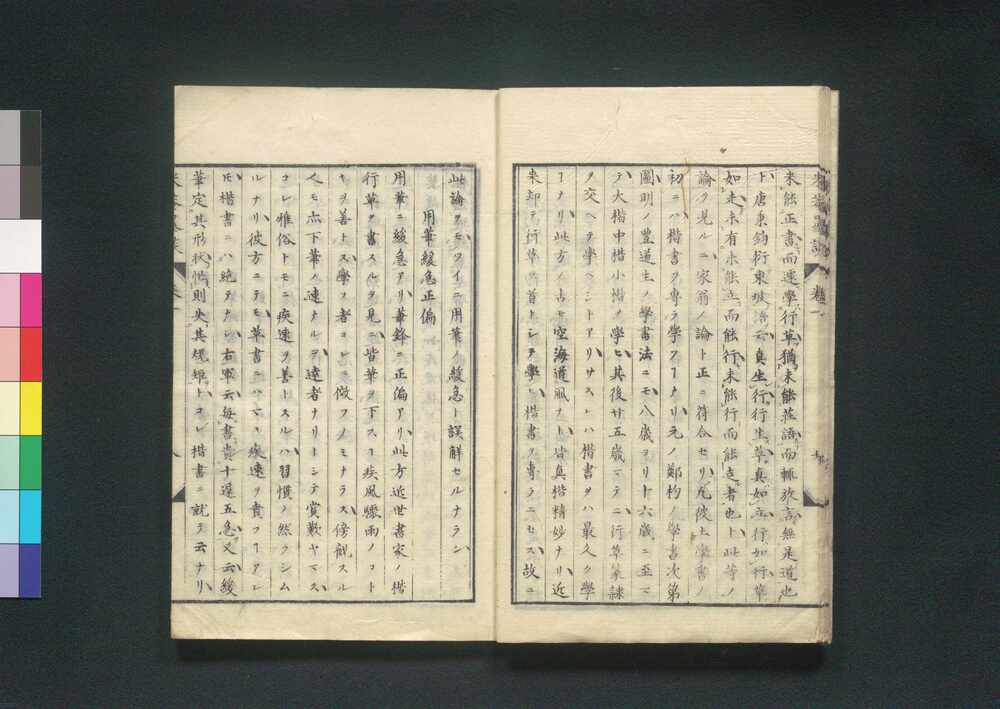 未能正書而遽學行草猶未能莊語而輒放言無是道也
ト唐東鈞衍東坡治云真生行行生草真如立行如行草
如走未有未能立而能行未能行而能走者也ト此等ノ
論ヲ見ルニ家翁ノ論ト正ニ符合セリ凡彼土學書ノ
初ニハ楷書ヲ專ラ學フコナリ元ノ鄭杓ノ學書次第
圖明ノ豊道生ノ學書法ニモ八歳ヨリ十六歳ニ至マ
テ大楷中楷小楷ノ學ヒ其後廿五歳マテニ行草篆隷
ヲ交ヘテ學ヘシトアリサスレハ楷書ヲハ最久ク學
コナリ此方ノ古モ空海道風ナト皆真楷精妙ナリ近
来却テ行草ヲ首トシテ學ヒ楷書ヲ專ラニセス故ニ
此論ヲモツイニ用筆ノ緩急ト誤解セルナラン
用筆緩急正偏
用筆ニ緩急アリ筆鋒ニ正偏アリ此方近世書家ノ楷
行草ヲ書スルヲ見ニ皆筆ヲ下スコ疾風驟雨ノコト
キヲ善トス學フ者コレニ倣フノミナラス傍觀スル
人モ亦下筆ノ速タルヲ達者ナリトシテ賞歎ヤマス
コレ雅俗トモニ疾速ヲ善トスルハ習慣ノ然ラシム
ルナリ彼方ニテモ草書ニハマヽ疾速ヲ貴フコアレ
𪜈楷書ニハ絶テナシ右軍云毎書貴十遲五急又云緩
筆定其形状忙則失其規矩トコレ楷書ニ就テ云ナリ